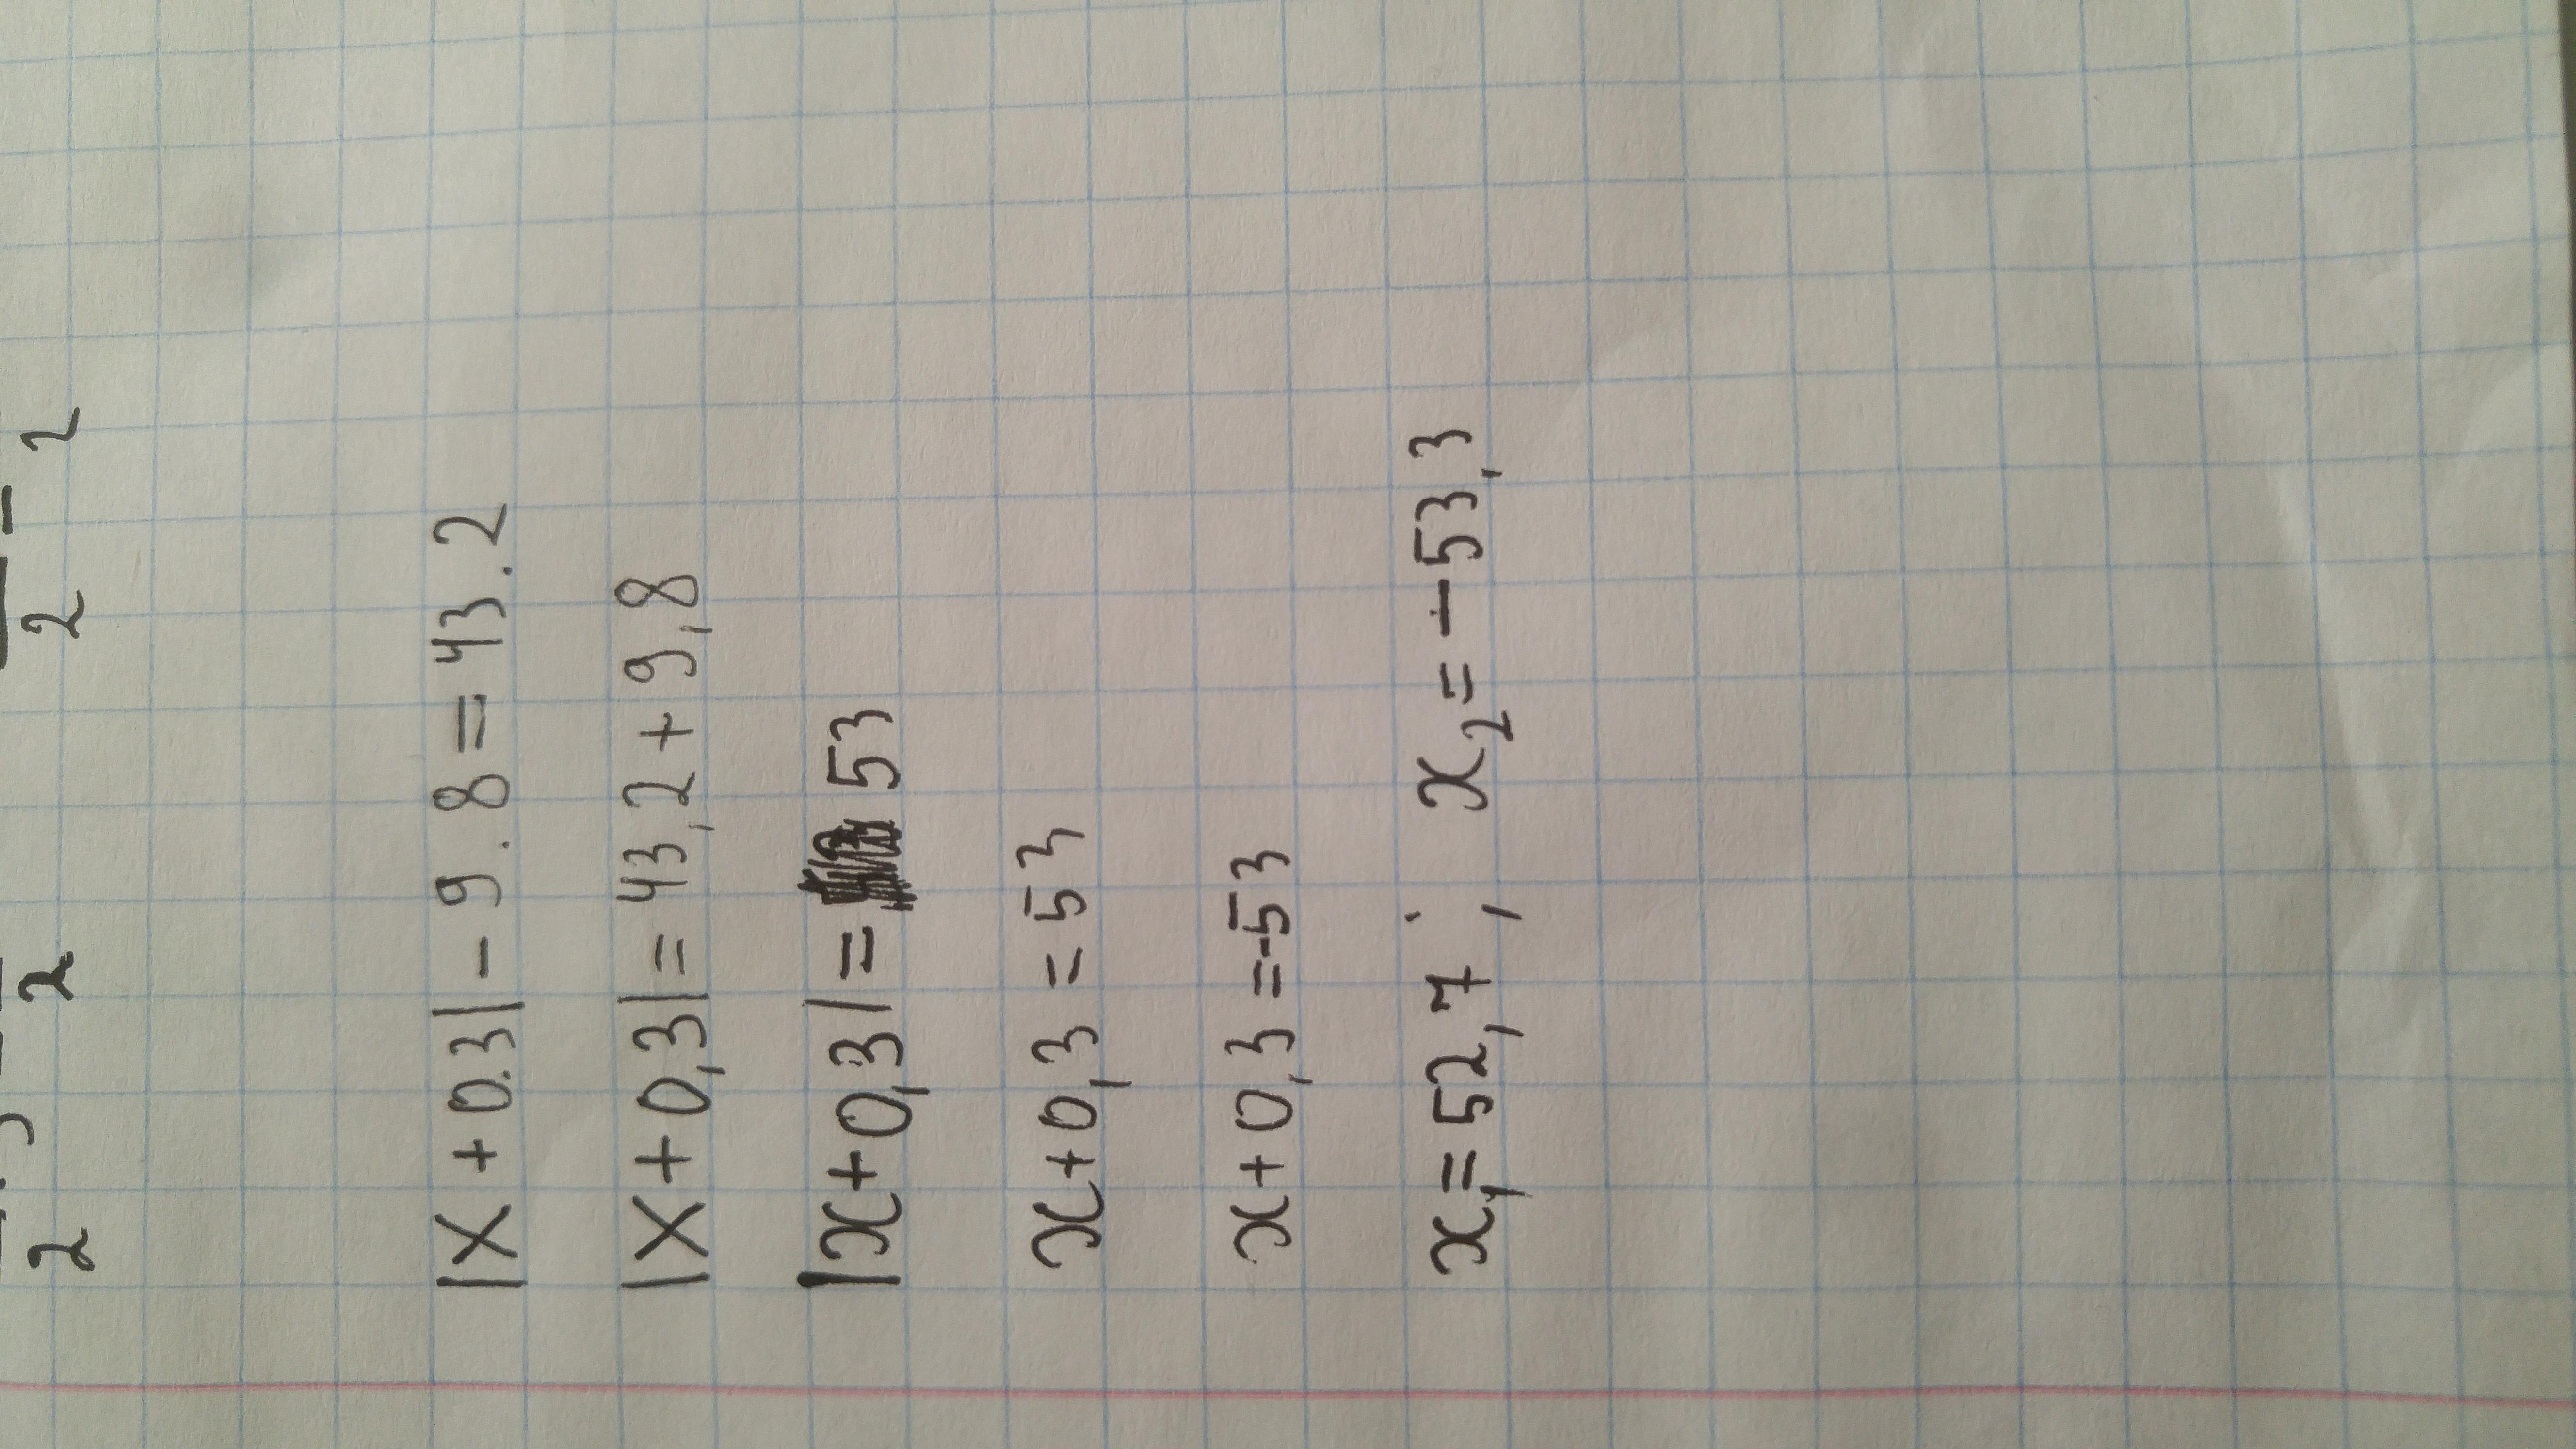 2 2 2 - 2
|x + 0.3| - 9.8 = 43.2
|x + 0,3| = 43,2 + 9,8
|x + 0,3| = 53
x + 0,3 = 53
x + 0,3 = -53
x₁ = 52,7 ; x₂ = -53,3